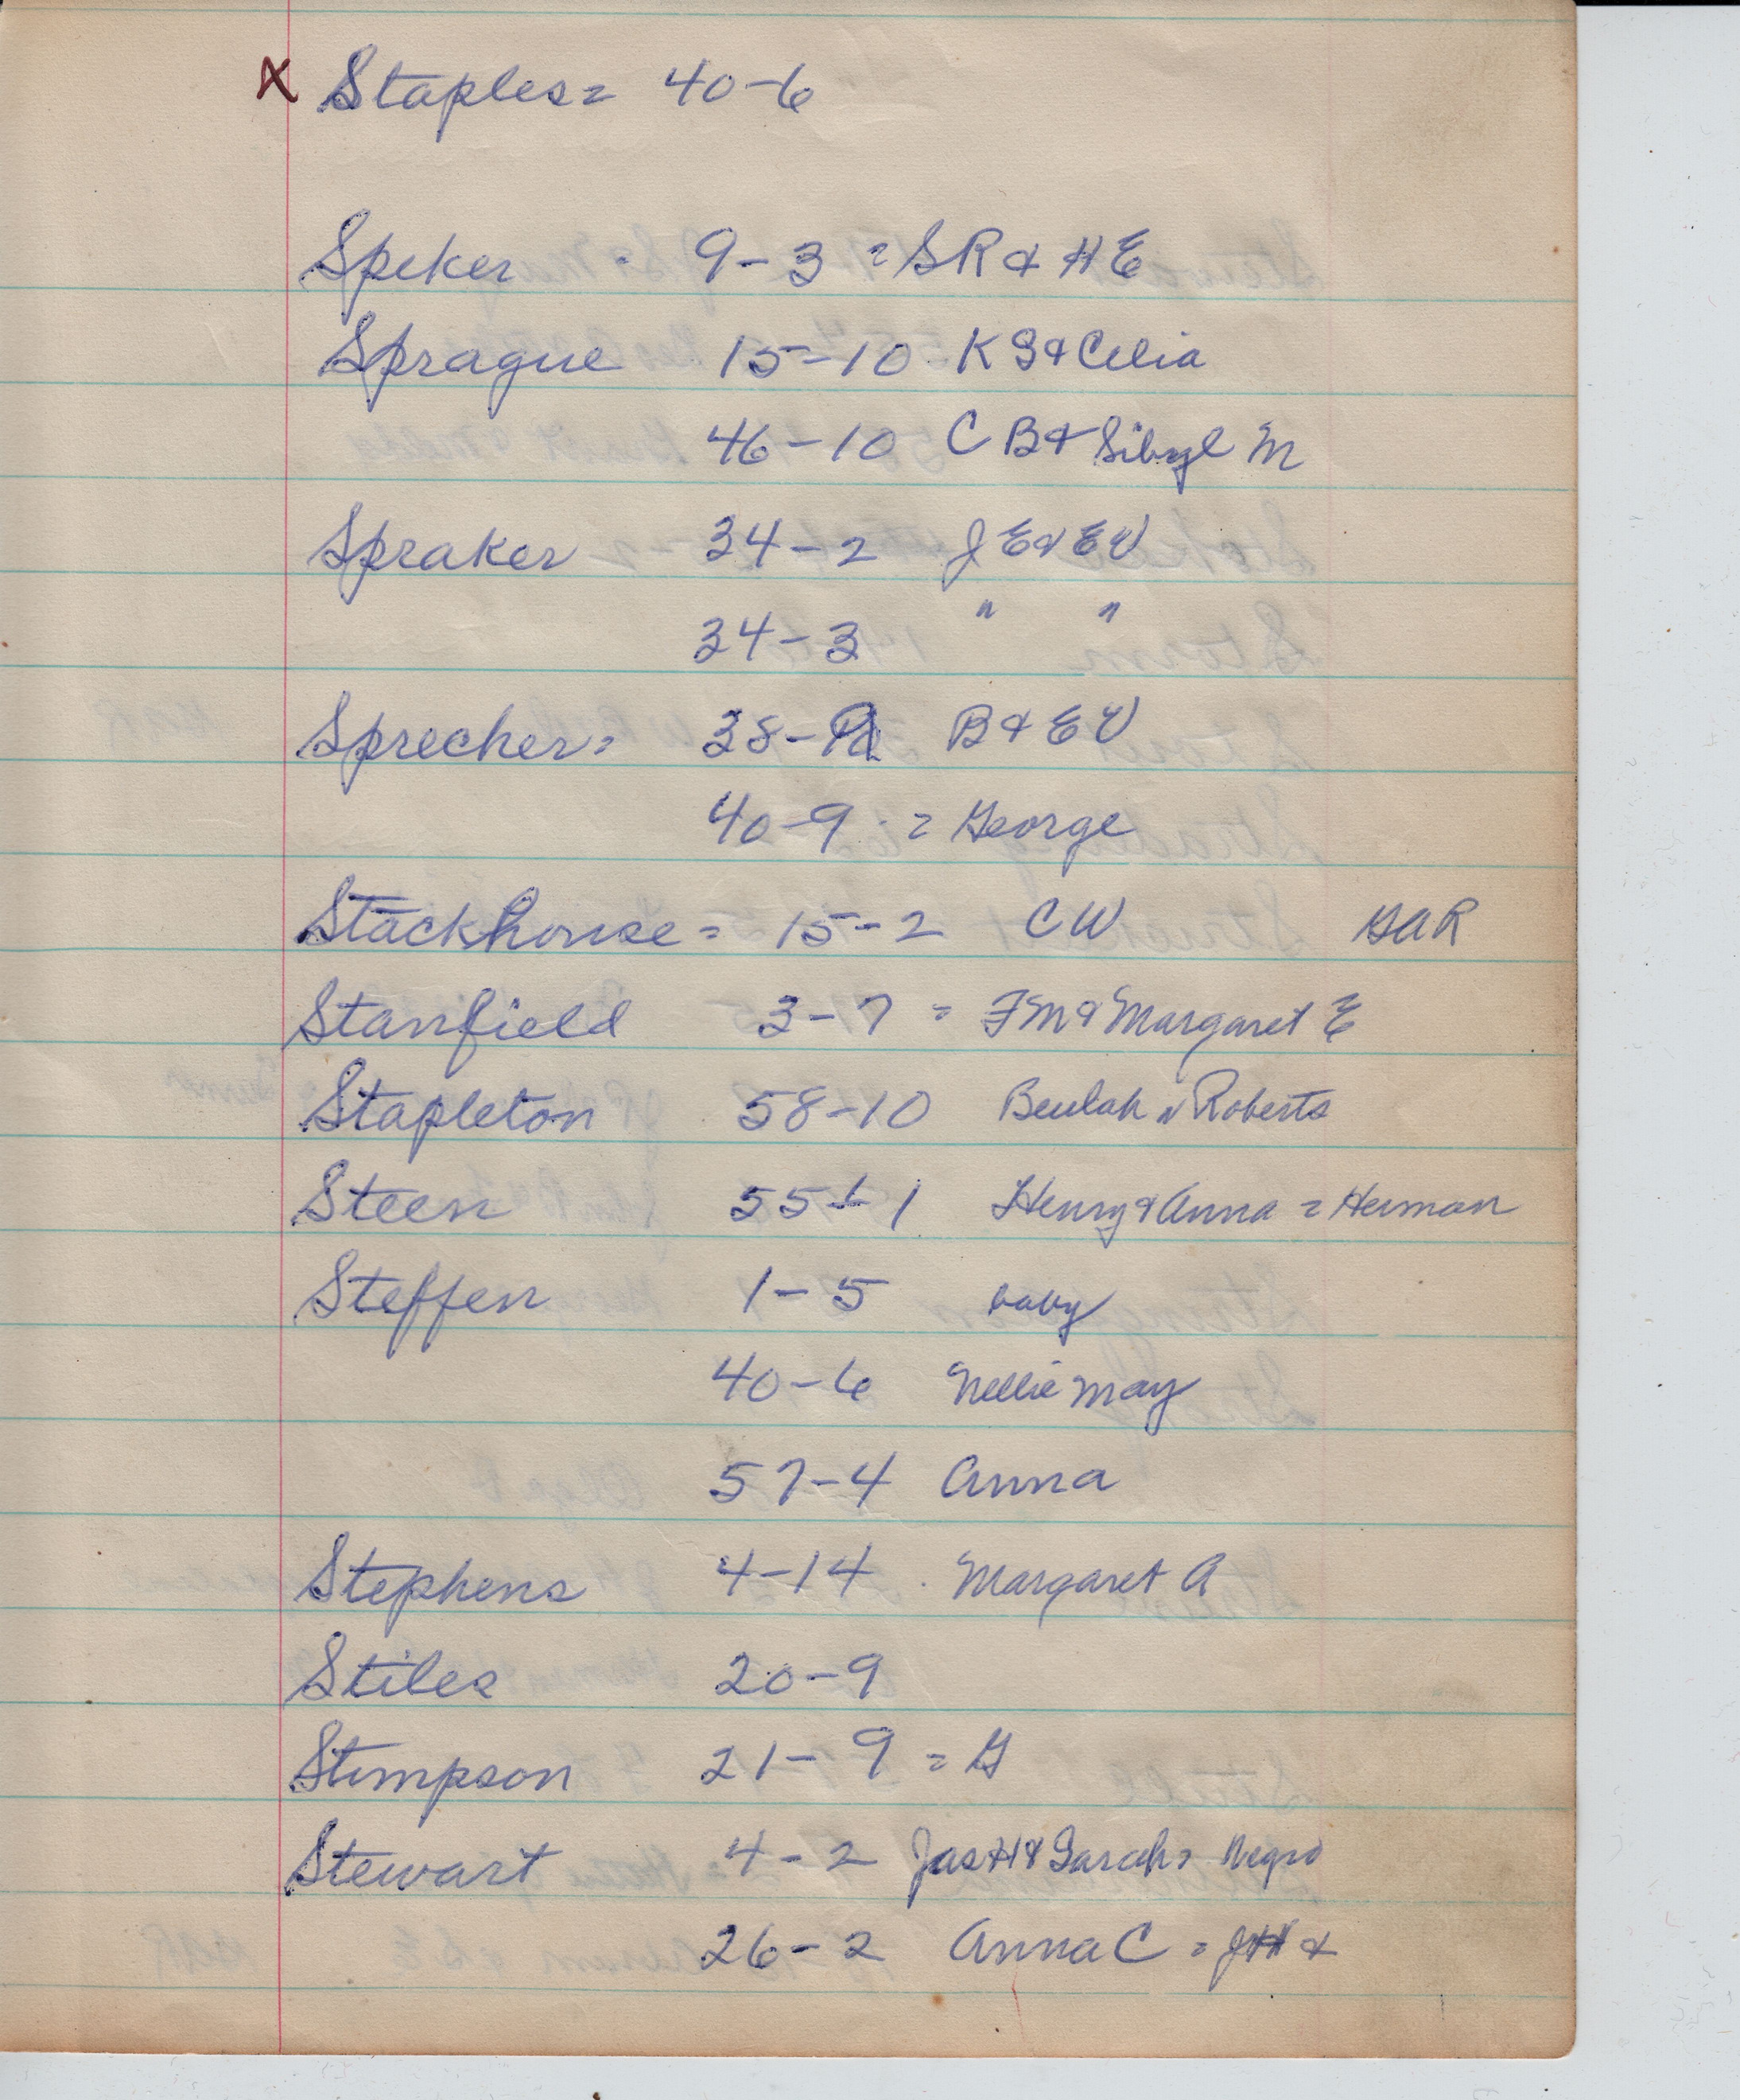 X Staples = 40-6
Speker - 9-3 = S R & H E
Sprague 15-10 K S & Celia
46-10 C B & Sibyl M
Spraker 34-2 J E & E V
34-3 " "
Sprecher = 38- B & E V
40-9 = George
Stackhouse = 15-2 C W GAR
Stanfield 3-7 = F M & Margaret E
Stapleton 58-10 Beulah N Roberts
Steen 55-1 Henry & Anna = Herman
Steffen 1-5 baby
40-6 Nellie May
57-4 Anna
Stephens 4-14 Margaret A
Stiles 20-9
Stimpson 21-9 = G
Stewart 4-2 Jas H & Sarah = Negro
26-2 Anna C = J H &